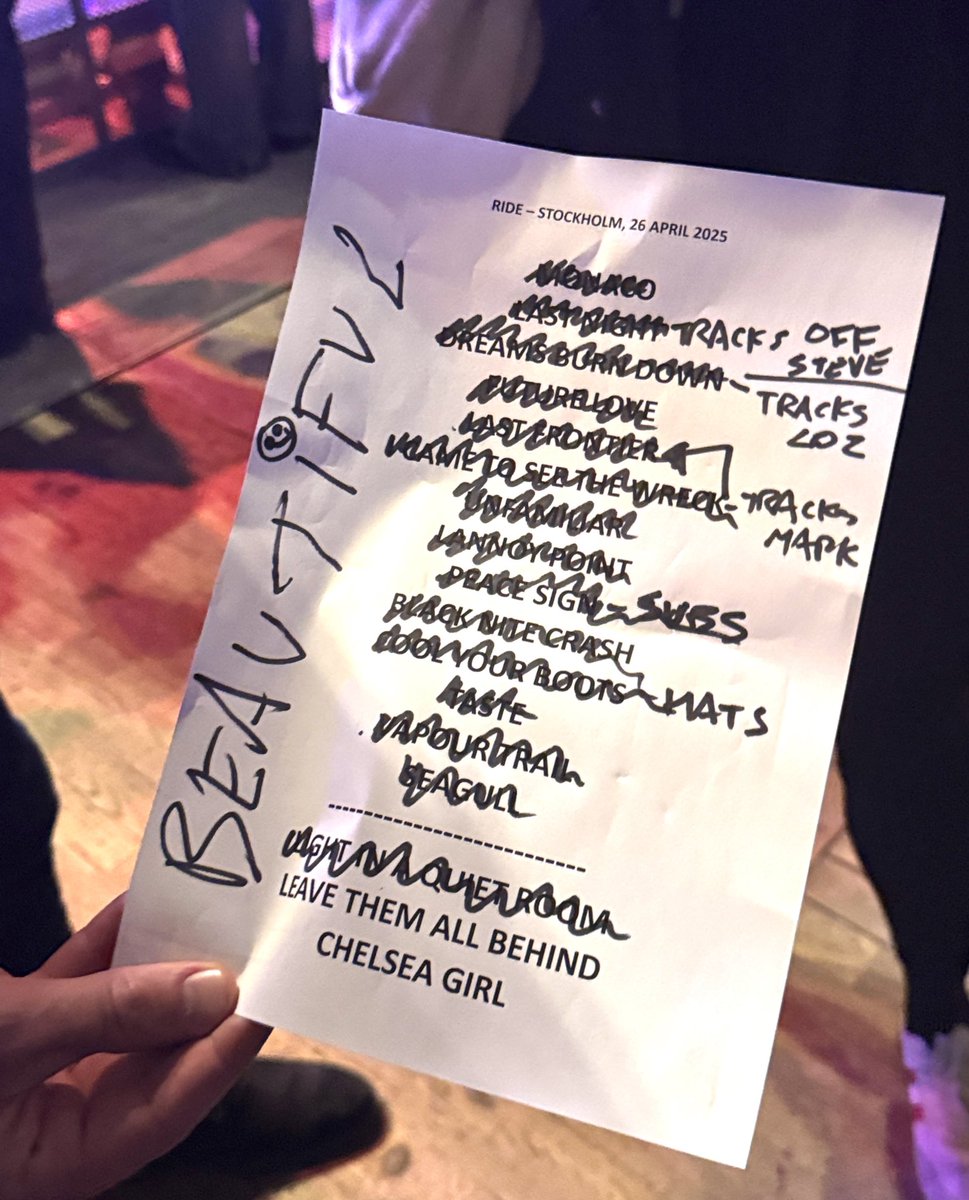 RIDE – STOCKHOLM, 26 APRIL 2025
MONACO
LAST NIGHT TRACKS OFF
STEVE
DREAMS BURN DOWN – TRACKS
LOZ
FUTURE LOVE
LAST FRONTIER
I CAME TO SEE THE WRECK – TRACKS
MARK
UNFAMILIAR
LANNOY POINT
PEACE SIGN – SUBS
BLACK NITE CRASH
COOL YOUR BOOTS – HATS
TASTE
VAPOUR TRAIL
SEAGULL
----------------------------
LIGHT IN A QUIET ROOM
LEAVE THEM ALL BEHIND
CHELSEA GIRL
BEAUTIFUL